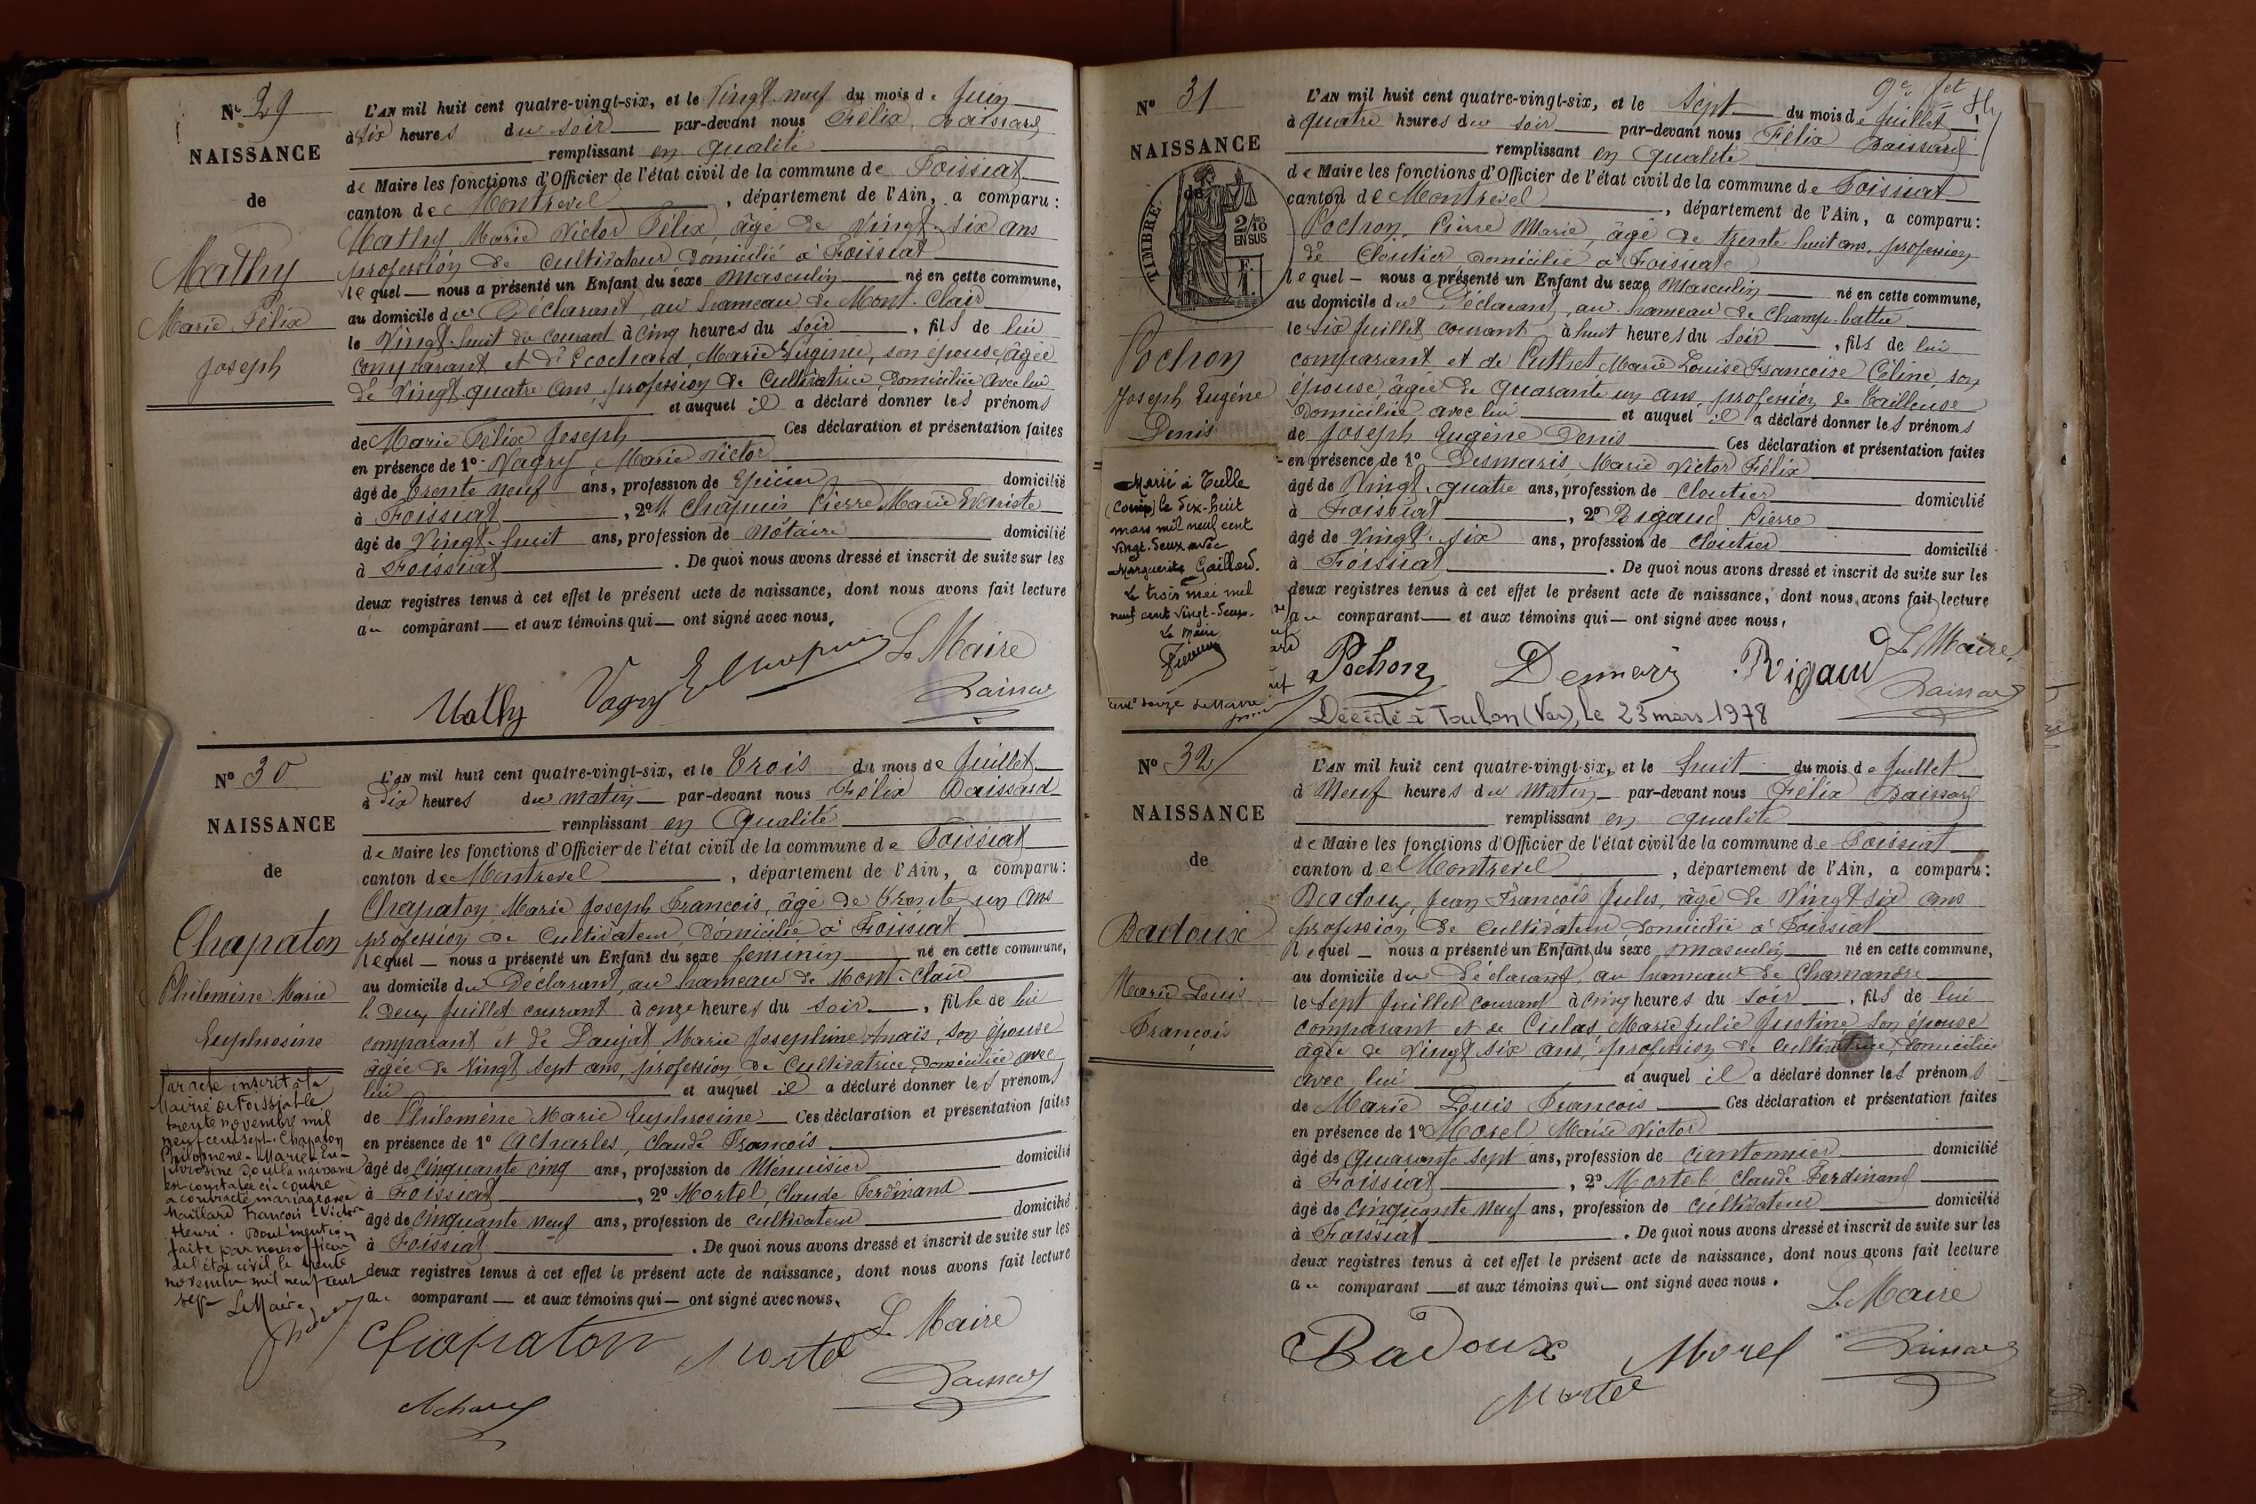 Nº 29
NAISSANCE
de
Mathy
Marie Félix
Joseph
L'AN mil huit cent quatre-vingt-six, et le Vingt neuf du mois de Juin
à six heures du soir par-devant nous Félix
remplissant en qualité
de Maire les fonctions d'Officier de l'état civil de la commune de Foissiat
canton de Montrevel, département de l'Ain, a comparu:
Mathy Marie Victor Félix, âgé de Vingt-six ans
profession de cultivateur domicilié à Foissiat
lequel nous a présenté un Enfant du sexe masculin né en cette commune,
au domicile du Déclarant, au hameau de Mont-Clair
le Vingt-huit du courant à cinq heures du soir, fils de lui
comparant et d'Ecochard Marie Virginie, son épouse, âgée
de Vingt quatre ans, profession de Cultivatrice, domiciliée avec lui
et auquel il a déclaré donner les prénoms
de Marie Félix Joseph Ces déclaration et présentation faites
en présence de 1º Vagry, Marie Victor
âgé de trente neuf ans, profession de Epicier domicilié
à Foissiat, 2º M. Chapuis Pierre Marie Evariste
âgé de Vingt-huit ans, profession de Notaire domicilié
à Foissiat. De quoi nous avons dressé et inscrit de suite sur les
deux registres tenus à cet effet le présent acte de naissance, dont nous avons fait lecture
au comparant et aux témoins qui ont signé avec nous.
Le Maire
Mathy Vagry
Nº 30
NAISSANCE
de
Chapaton
Philomène Marie
Euphrosine
Par acte inscrit à la
Mairie de Foissiat le
trente novembre mil
neuf cent sept. Chapaton
Philomène-Marie-Eu-
phrosine dont la naissance
est constatée ci-contre
a contracté mariage avec
Maillard François Victor
Henri. Dont mention
faite par nous officier
de l'état civil le trente
novembre mil neuf cent
sept Le Maire,
L'AN mil huit cent quatre-vingt-six, et le Trois du mois de Juillet
à dix heures du matin par-devant nous Félix
remplissant en qualité
de Maire les fonctions d'Officier de l'état civil de la commune de Foissiat
canton de Montrevel, département de l'Ain, a comparu:
Chapaton Marie Joseph François, âgé de trente un ans
profession de Cultivateur, domicilié à Foissiat
lequel nous a présenté un Enfant du sexe féminin né en cette commune,
au domicile du Déclarant, au hameau de Mont-Clair
le deux Juillet courant à onze heures du soir, fille de lui
comparant et de Marie Joséphine Anaïs, son épouse
âgée de Vingt sept ans, profession de Cultivatrice, domiciliée avec
lui et auquel il a déclaré donner les prénoms
de Philomène Marie Euphrosine Ces déclaration et présentation faites
en présence de 1º Acharles, Claude François
âgé de Cinquante cinq ans, profession de Menuisier domicilié
à Foissiat, 2º Mortel, Claude Ferdinand
âgé de cinquante neuf ans, profession de cultivateur domicilié
à Foissiat. De quoi nous avons dressé et inscrit de suite sur les
deux registres tenus à cet effet le présent acte de naissance, dont nous avons fait lecture
au comparant et aux témoins qui ont signé avec nous.
Le Maire
Chapaton Mortel
Nº 31
NAISSANCE
de
TIMBRE
2/10
EN SUS
Pochon
Joseph Eugène
Denis
Marié à Tulle
(Corrèze) le Dix-huit
mars mil neuf cent
vingt-deux avec
Marguerite Gaillard.
Le trois mai mil
neuf cent vingt-deux.
Le Maire
L'AN mil huit cent quatre-vingt-six, et le Sept du mois de Juillet
à quatre heures du soir par-devant nous Félix
remplissant en qualité
de Maire les fonctions d'Officier de l'état civil de la commune de Foissiat
canton de Montrevel, département de l'Ain, a comparu:
Pochon, Pierre Marie, âgé de trente huit ans, profession
de Cloutier domicilié à Foissiat
lequel nous a présenté un Enfant du sexe Masculin né en cette commune,
au domicile du Déclarant, au hameau de Champ-battu
le six Juillet courant à huit heures du soir, fils de lui
comparant et de Marie Louise Françoise Céline, son
épouse, âgée de quarante un ans, profession de Tailleuse
domiciliée avec lui et auquel il a déclaré donner les prénoms
de Joseph Eugène Denis Ces déclaration et présentation faites
en présence de 1º Desmaris Marie Victor Félix
âgé de Vingt-quatre ans, profession de Cloutier domicilié
à Foissiat, 2º Rigaud Pierre
âgé de Vingt-six ans, profession de cloutier domicilié
à Foissiat. De quoi nous avons dressé et inscrit de suite sur les
deux registres tenus à cet effet le présent acte de naissance, dont nous avons fait lecture
au comparant et aux témoins qui ont signé avec nous.
Le Maire
Pochon Rigaud
Décédé à Toulon (Var), le 23 mars 1978
Nº 32
NAISSANCE
de
Badoux
Marie Louis
François
L'AN mil huit cent quatre-vingt-six, et le huit du mois de Juillet
à Neuf heures du Matin par-devant nous Félix
remplissant en qualité
de Maire les fonctions d'Officier de l'état civil de la commune de Foissiat
canton de Montrevel, département de l'Ain, a comparu:
Badoux, Jean François Jules, âgé de Vingt six ans
profession de Cultivateur domicilié à Foissiat
lequel nous a présenté un Enfant du sexe masculin né en cette commune,
au domicile du Déclarant, au hameau de Chamandre
le sept Juillet courant à cinq heures du soir, fils de lui
comparant et de Marie Julie Justine son épouse
âgée de Vingt six ans, profession de cultivatrice, domiciliée
avec lui et auquel il a déclaré donner les prénoms
de Marie Louis François Ces déclaration et présentation faites
en présence de 1º Morel Marie Victor
âgé de quarante sept ans, profession de cantonnier domicilié
à Foissiat, 2º Mortel Claude Ferdinand
âgé de Cinquante neuf ans, profession de cultivateur domicilié
à Foissiat. De quoi nous avons dressé et inscrit de suite sur les
deux registres tenus à cet effet le présent acte de naissance, dont nous avons fait lecture
au comparant et aux témoins qui ont signé avec nous.
Le Maire
Badoux Morel
Mortel